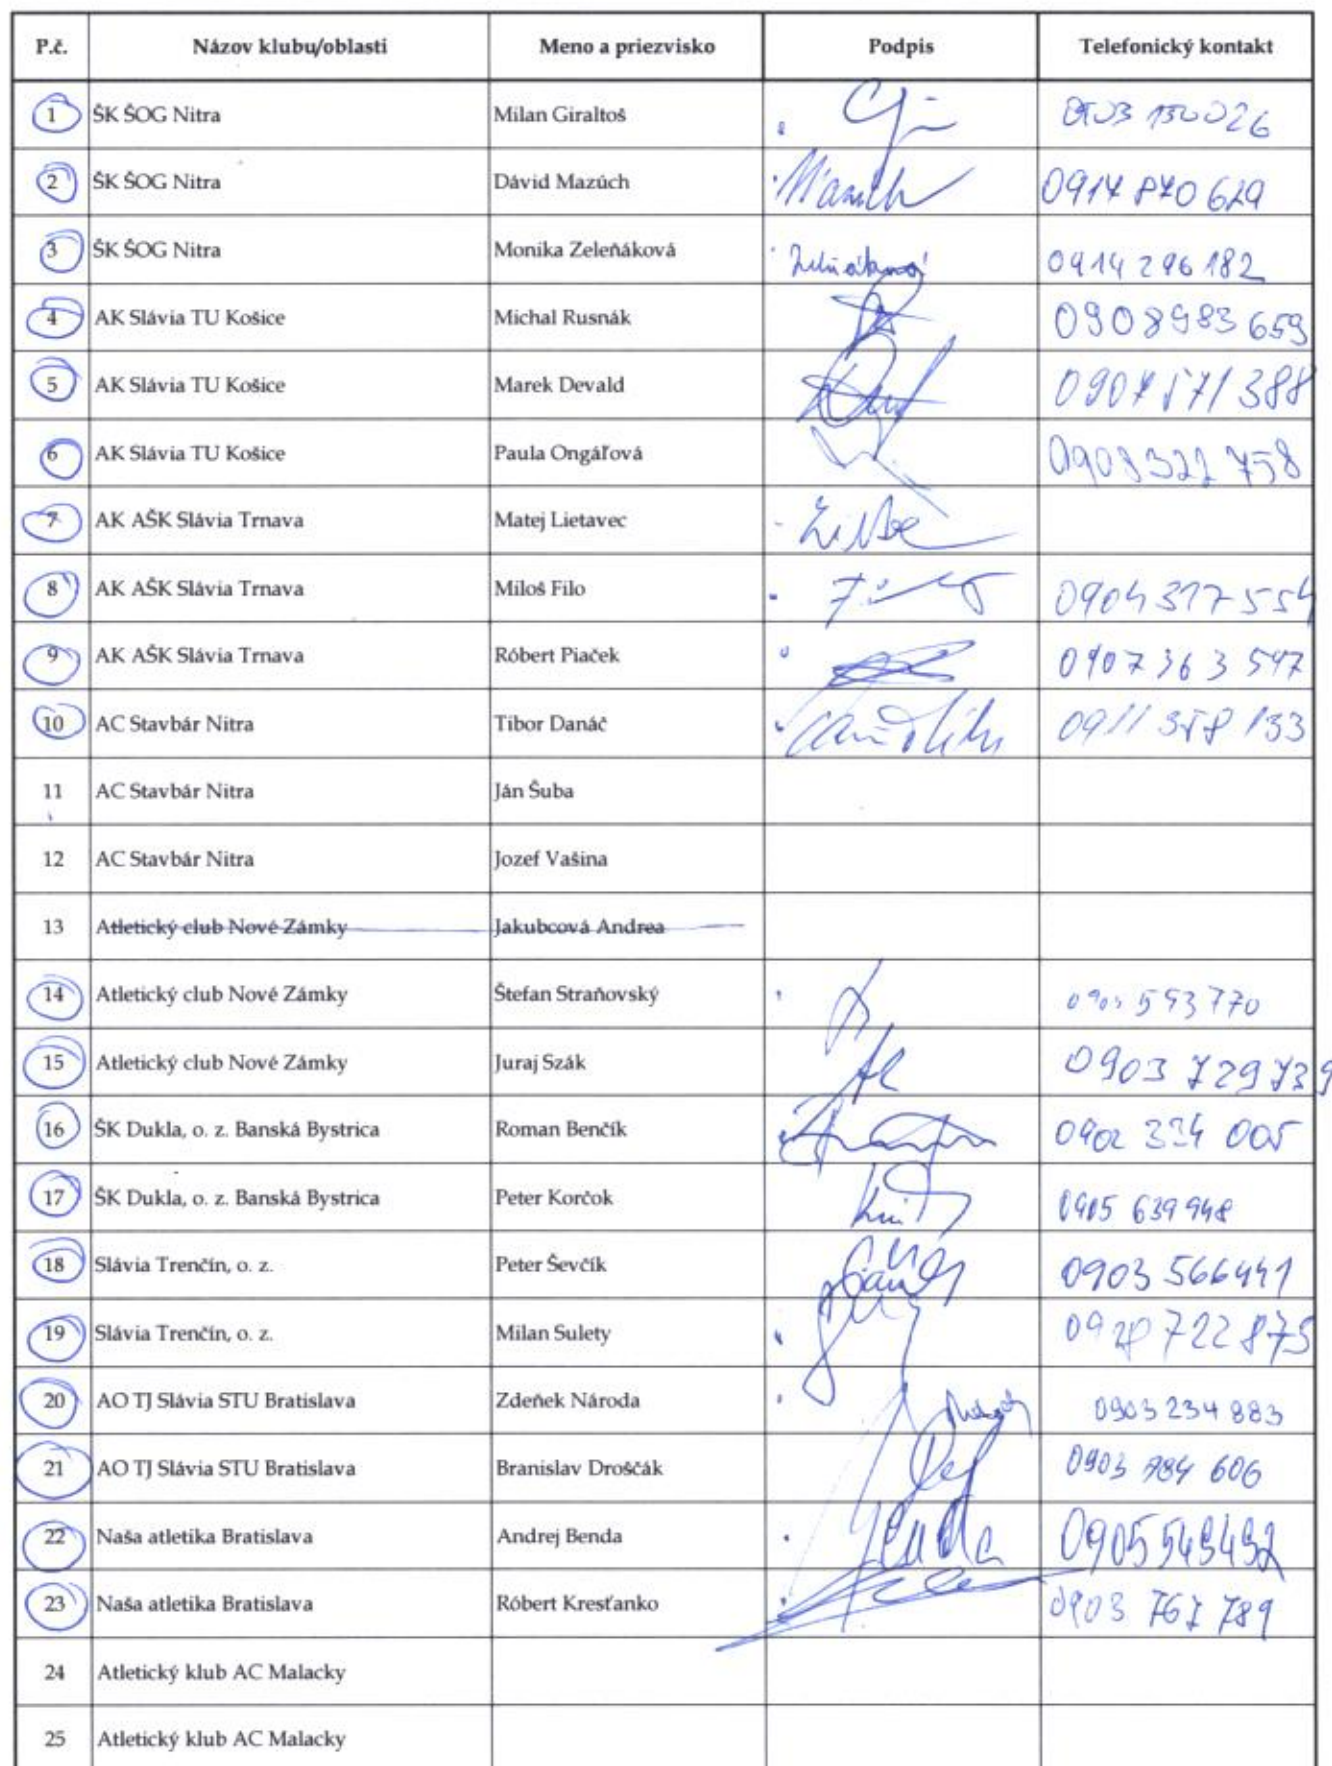 P.č. Názov klubu/oblasti Meno a priezvisko Podpis Telefonický kontakt
1 ŠK ŠOG Nitra Milan Giraltoš
2 ŠK ŠOG Nitra Dávid Mazúch 0914 870 629
3 ŠK ŠOG Nitra Monika Zeleňáková Zeleňáková 0914 296 182
4 AK Slávia TU Košice Michal Rusnák 0908983 659
5 AK Slávia TU Košice Marek Devald 0907 571 388
6 AK Slávia TU Košice Paula Ongáľová 0908322 758
7 AK AŠK Slávia Trnava Matej Lietavec
8 AK AŠK Slávia Trnava Miloš Filo 0904 317 554
9 AK AŠK Slávia Trnava Róbert Piaček 0907 363 547
10 AC Stavbár Nitra Tibor Danáč 0911 358 133
11 AC Stavbár Nitra Ján Šuba
12 AC Stavbár Nitra Jozef Vašina
13 Atletický club Nové Zámky Jakubcová Andrea
14 Atletický club Nové Zámky Štefan Straňovský 593770
15 Atletický club Nové Zámky Juraj Szák 0903 729 739
16 ŠK Dukla, o. z. Banská Bystrica Roman Benčík 0902 334 005
17 ŠK Dukla, o. z. Banská Bystrica Peter Korčok 0905 639 948
18 Slávia Trenčín, o. z. Peter Ševčík 0903 566441
19 Slávia Trenčín, o. z. Milan Sulety 722 875
20 AO TJ Slávia STU Bratislava Zdeňek Národa 0903 234 883
21 AO TJ Slávia STU Bratislava Branislav Droščák 0903 784 606
22 Naša atletika Bratislava Andrej Benda Benda 0905 549492
23 Naša atletika Bratislava Róbert Kresťanko 0903 767 789
24 Atletický klub AC Malacky
25 Atletický klub AC Malacky